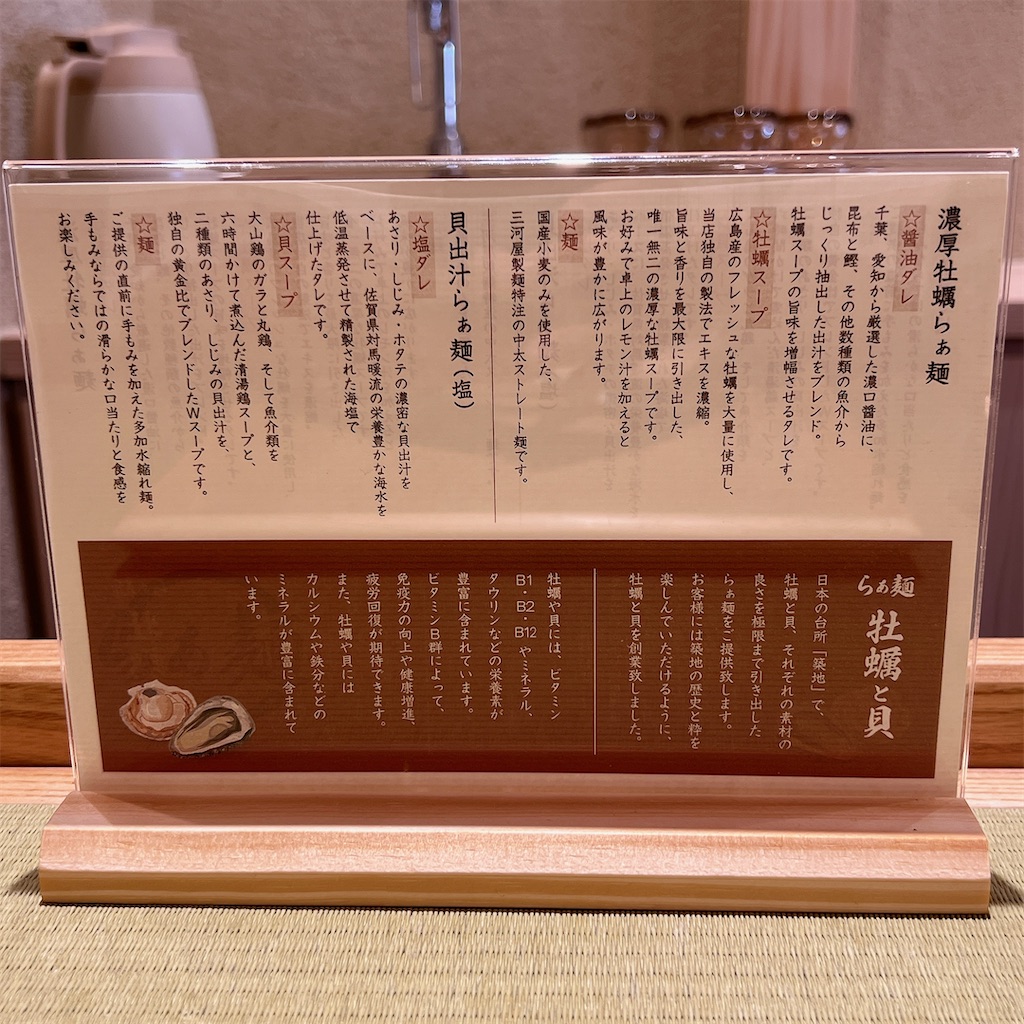 濃厚牡蠣らぁ麺
☆醤油ダレ
千葉、愛知から厳選した濃口醤油に、
昆布と鰹、その他数種類の魚介から
じっくり抽出した出汁をブレンド。
牡蠣スープの旨味を増幅させるタレです。
☆牡蠣スープ
広島産のフレッシュな牡蠣を大量に使用し、
当店独自の製法でエキスを濃縮。
旨味と香りを最大限に引き出した、
唯一無二の濃厚な牡蠣スープです。
お好みで卓上のレモン汁を加えると
風味が豊かに広がります。
☆麺
国産小麦のみを使用した、
三河屋製麺特注の中太ストレート麺です。
貝出汁らぁ麺(塩)
☆塩ダレ
あさり・しじみ・ホタテの濃密な貝出汁を
ベースに、佐賀県対馬暖流の栄養豊かな海水を
低温蒸発させて精製された海塩で
仕上げたタレです。
☆貝スープ
大山鶏のガラと丸鶏、そして魚介類を
六時間かけて煮込んだ清湯鶏スープと、
二種類のあさり、しじみの貝出汁を、
独自の黄金比でブレンドしたWスープです。
☆麺
ご提供の直前に手もみを加えた多加水縮れ麺。
手もみならではの滑らかな口当たりと食感を
お楽しみください。
らぁ麺 牡蠣と貝
日本の台所「築地」で、
牡蠣と貝、それぞれの素材の
良さを極限まで引き出した
らぁ麺をご提供致します。
お客様には築地の歴史と粋を
楽しんでいただけるように、
牡蠣と貝を創業致しました。
牡蠣や貝には、ビタミン
B1・B2・B12やミネラル、
タウリンなどの栄養素が
豊富に含まれています。
ビタミンB群によって、
免疫力の向上や健康増進、
疲労回復が期待できます。
また、牡蠣や貝には
カルシウムや鉄分などの
ミネラルが豊富に含まれて
います。